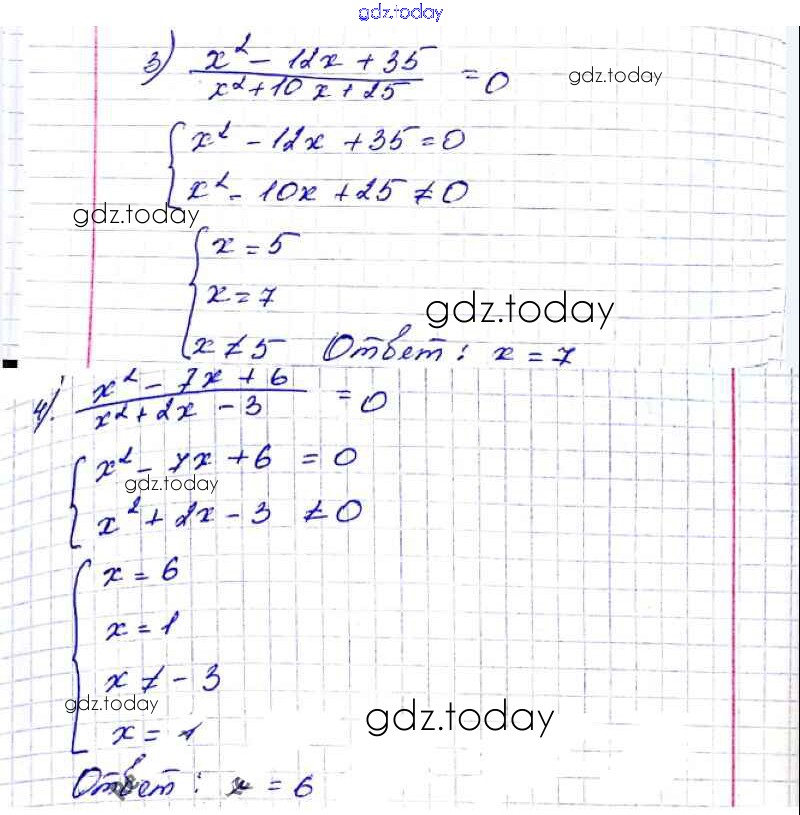 gdz.today
3) x² - 12x + 35 / x² + 10x + 25 = 0
gdz.today
{ x² - 12x + 35 = 0
x² - 10x + 25 ≠ 0
gdz.today
{ x = 5
x = 7
gdz.today
x ≠ 5 Ответ: x = 7
4). x² - 7x + 6 / x² + 2x - 3 = 0
{ x² - 7x + 6 = 0
gdz.today
x² + 2x - 3 ≠ 0
{ x = 6
x = 1
x ≠ -3
gdz.today
x = 1
gdz.today
Ответ: x = 6